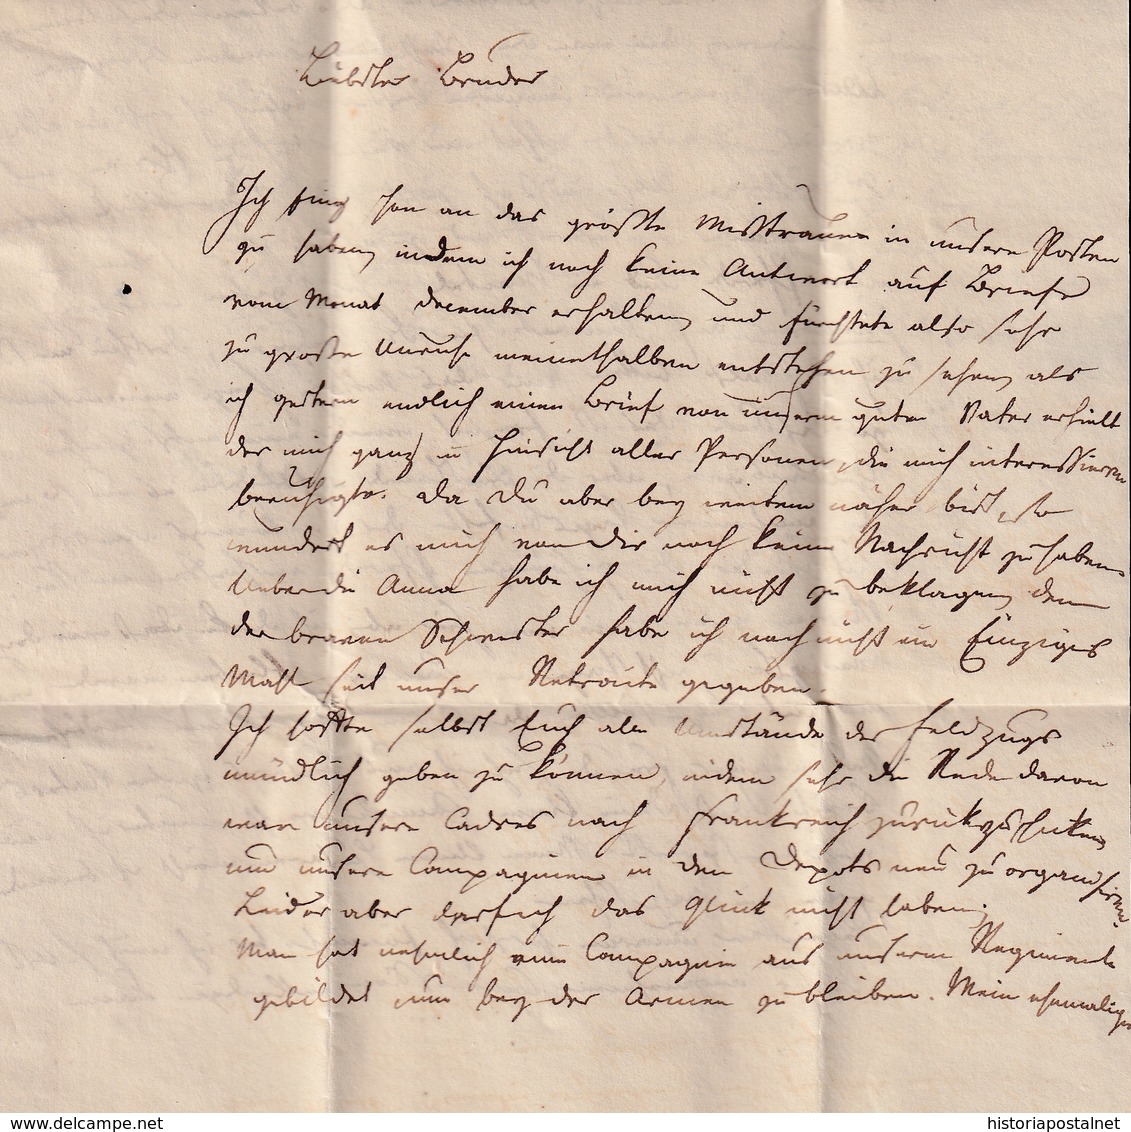 Liebster Bruder
Ich fing schon an das größte Misstrauen in unsere Posten
zu haben, indem ich noch keine Antwort auf Briefe
vom Monat december erhalten, und fürchtete also sehr
zu große Unruhe meinethalben entstehen zu sehen, als
ich gestern endlich einen Brief von unserm guten Vater erhielt
der mich ganz in Hinsicht aller Personen, die mich interessieren
beruhigte. Da Du aber bey weitem näher bist, so
wundert es mich von Dir noch keine Nachricht zu haben.
Ueber die Anna habe ich mich nicht zu beklagen, denn
der braven Schwester habe ich noch nicht ein Einziges
Mahl seit unser Retraite gegeben.
Ich hoffte selbst Euch alle Umstände des Feldzugs
mündlich geben zu können, indem sehr die Rede davon
war unsere Cadres nach Frankreich zurükzuschiken
und unsere Compagnien in den Depots neu zu organisiren
Leider aber darf ich das Glück nicht haben;
Man hat nehmlich eine Compagnie aus unserm Regimente
gebildet um bey der Armee zu bleiben. Mein ehmaliger
www.delcampe.net
historiapostalnet